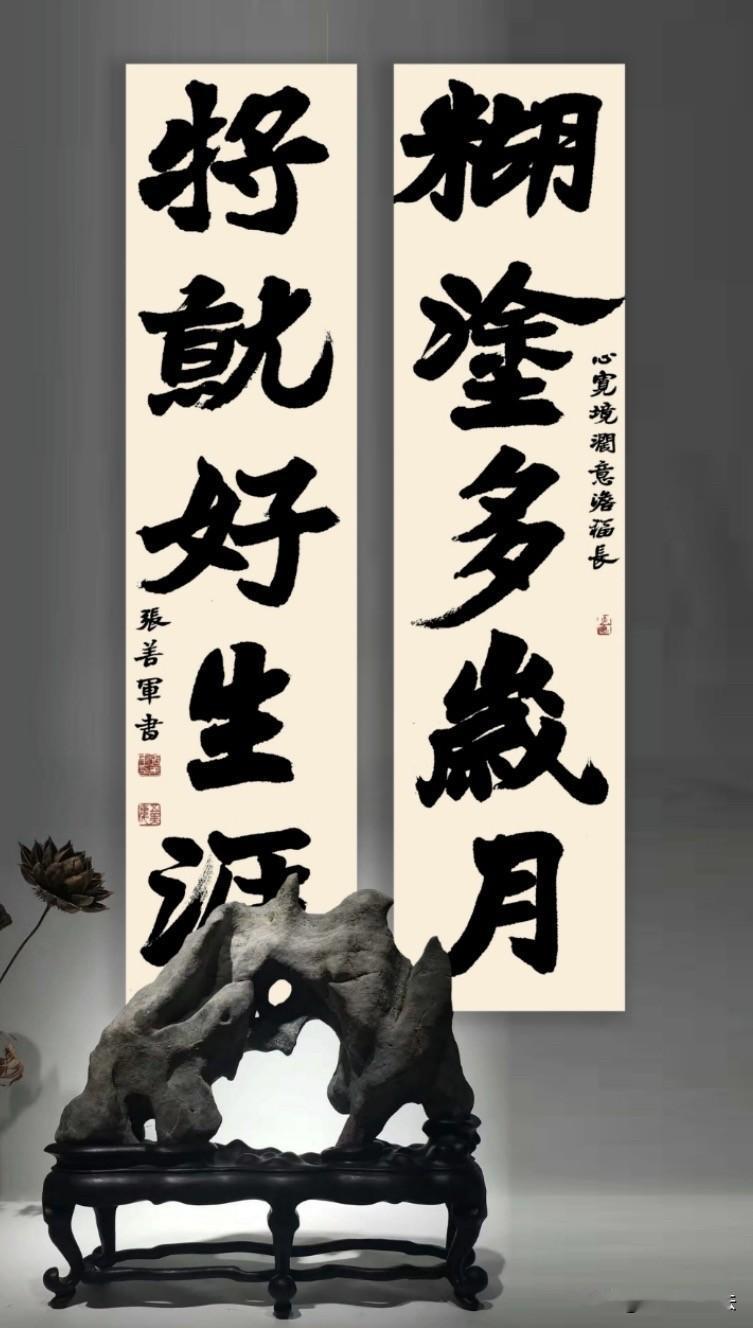 糊塗多歲月
心寬境濶意澹福長
将就好生涯
張善軍書